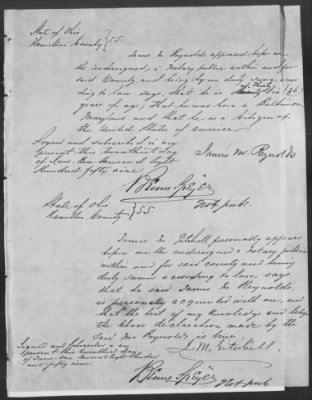 State of Ohio
Hamilton County } S.S.
James M Reynolds appeared before me
the undersigned, a Notary public within and for
said County, and being by me duly sworn, accor
ding to law, says, that he is Thirty Six (36)
years of age, that he was born in Baltimore
Maryland and that he is a Citizen of
the United States of america
Signed and subscribed in my
presence this twentieth day
of June One thousand Eight
Hundred fifty nine
James M. Reynolds
Not. pub.
State of Ohio
Hamilton County } S.S.
James M. Getchell personally appeared
before me the undersigned a notary public
within and for said county and being
duly sworn according to law, says
that he said James M Reynolds
is personally acquainted with me, and
that the best of my knowledge and belief
the above declaration made by the
said Mr Reynolds is true
J. M. Getchell
Signed and subscribed in my
presence this twentieth day
of June one thousand Eight Hundred
and fifty nine.
Not. pub